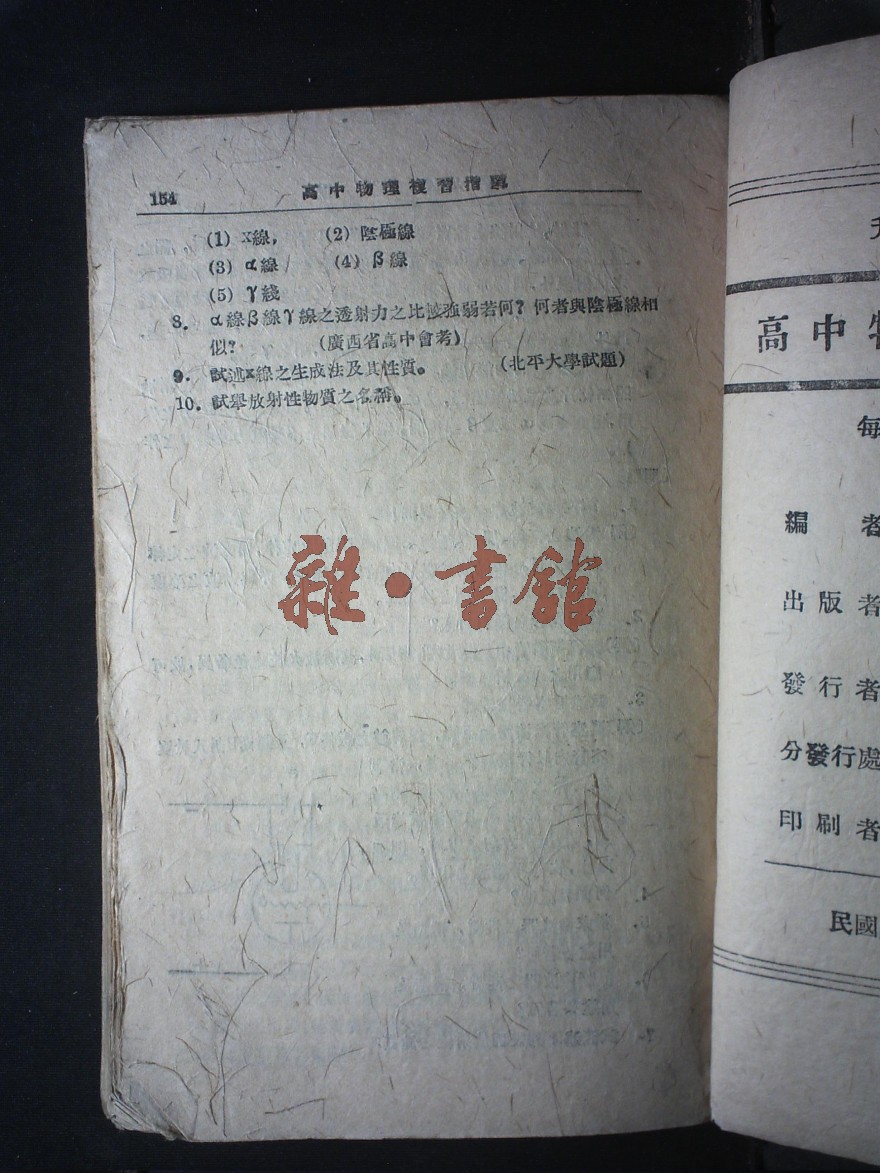 154
高中物理複習指導
(1) X線, (2) 陰極線
(3) α線 (4) β線
(5) γ綫
8. α線β線γ線之透射力之比較強弱若何？何者與陰極線相
似？ (廣西省高中會考)
9. 試述X線之生成法及其性質。 (北平大學試題)
10. 試舉放射性物質之名稱。
雜·書館
高中
編者
出版者
發行者
分發行處
印刷者
民國